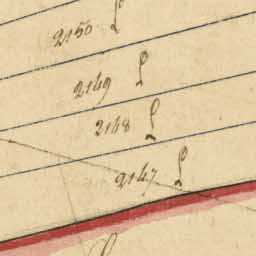 2150 L
2149 L
2148 L
2147 L